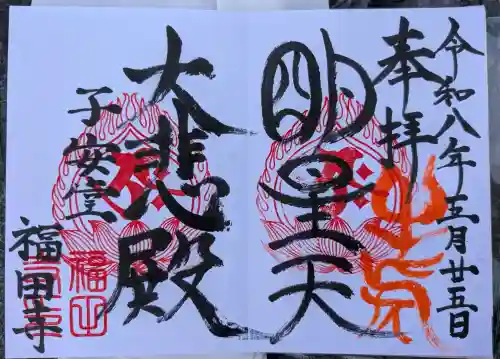 令和八年五月廿五日
奉拝
明星天
大悲殿
子安堂
福田寺